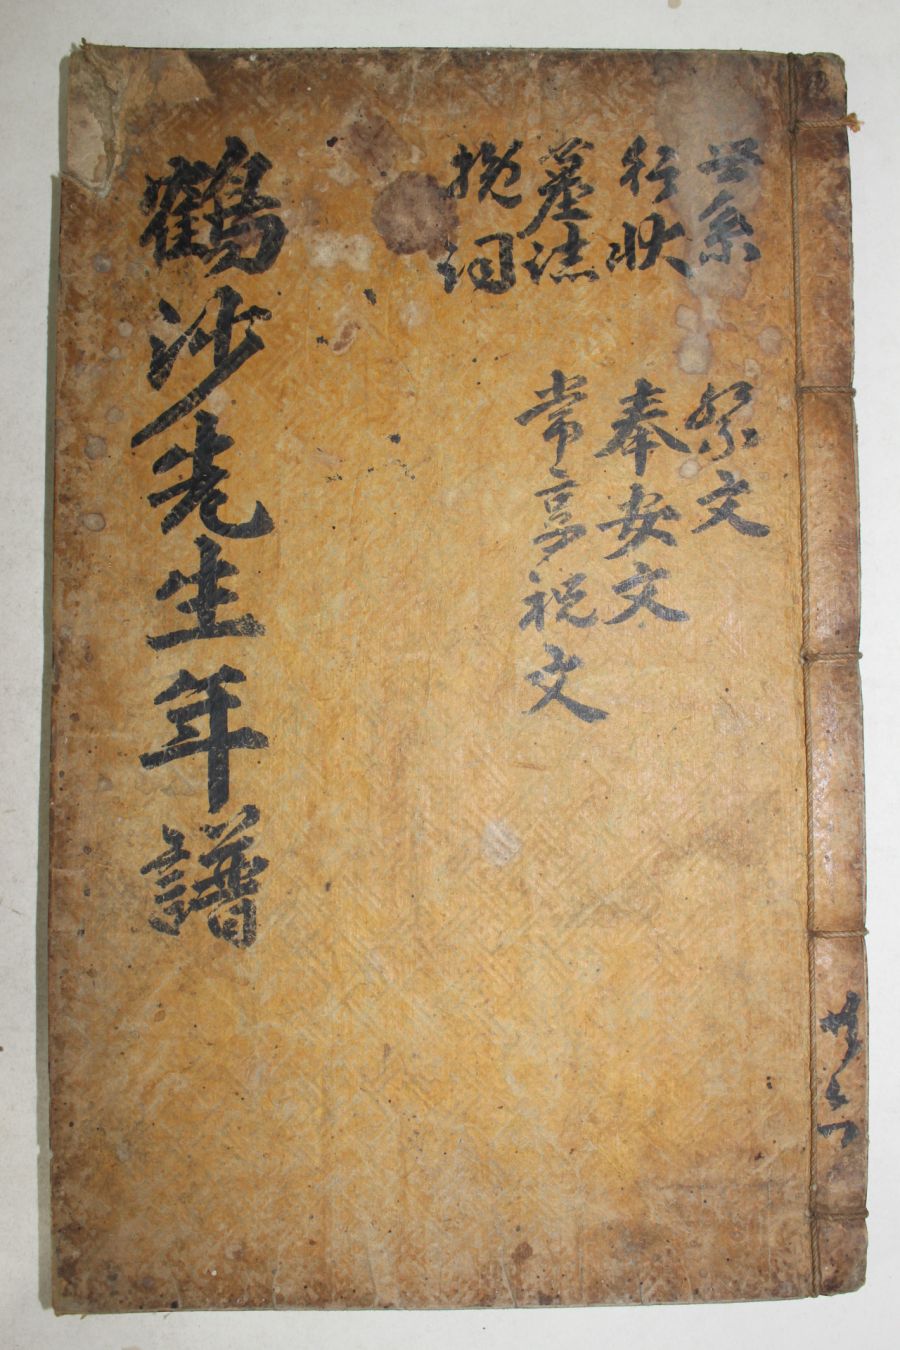 世系
行狀
墓誌
挽詞
祭文
奉安文
常享祝文
鶴沙先生年譜